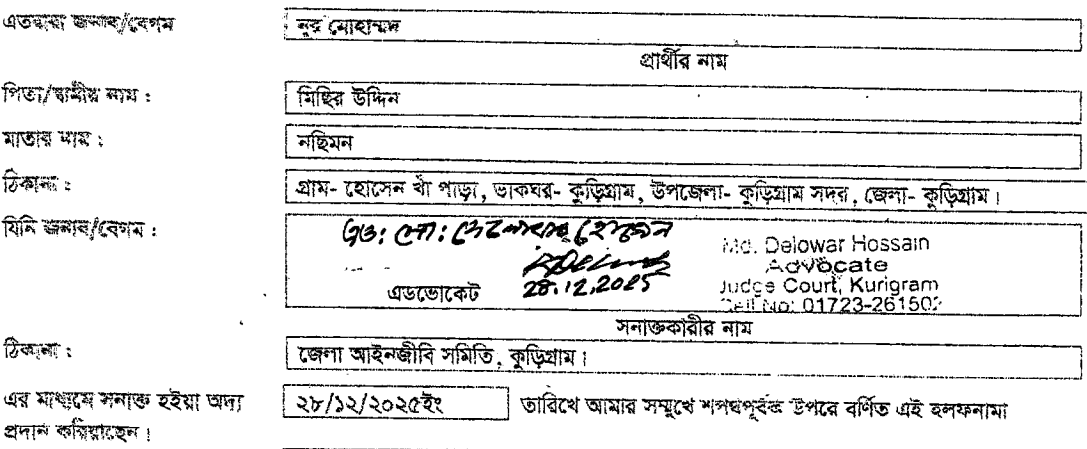 এতদ্বারা জনাব/বেগম নুর মোহাম্মদ
প্রার্থীর নাম
পিতা/স্বামীর নাম : মিছির উদ্দিন
মাতার নাম : নছিমন
ঠিকানা : গ্রাম- হোসেন খাঁ পাড়া, ডাকঘর- কুড়িগ্রাম, উপজেলা- কুড়িগ্রাম সদর, জেলা- কুড়িগ্রাম।
যিনি জনাব/বেগম : এড: মো: দেলোয়ার হোসেন
Md. Delowar Hossain
Advocate
Judge Court, Kurigram
Cell No: 01723-26150
এডভোকেট 28.12.2025
সনাক্তকারীর নাম
ঠিকানা : জেলা আইনজীবি সমিতি, কুড়িগ্রাম।
এর মাধ্যমে সনাক্ত হইয়া অদ্য ২৮/১২/২০২৫ইং তারিখে আমার সম্মুখে শপথপূর্বক উপরে বর্ণিত এই হলফনামা
প্রদান করিয়াছেন।